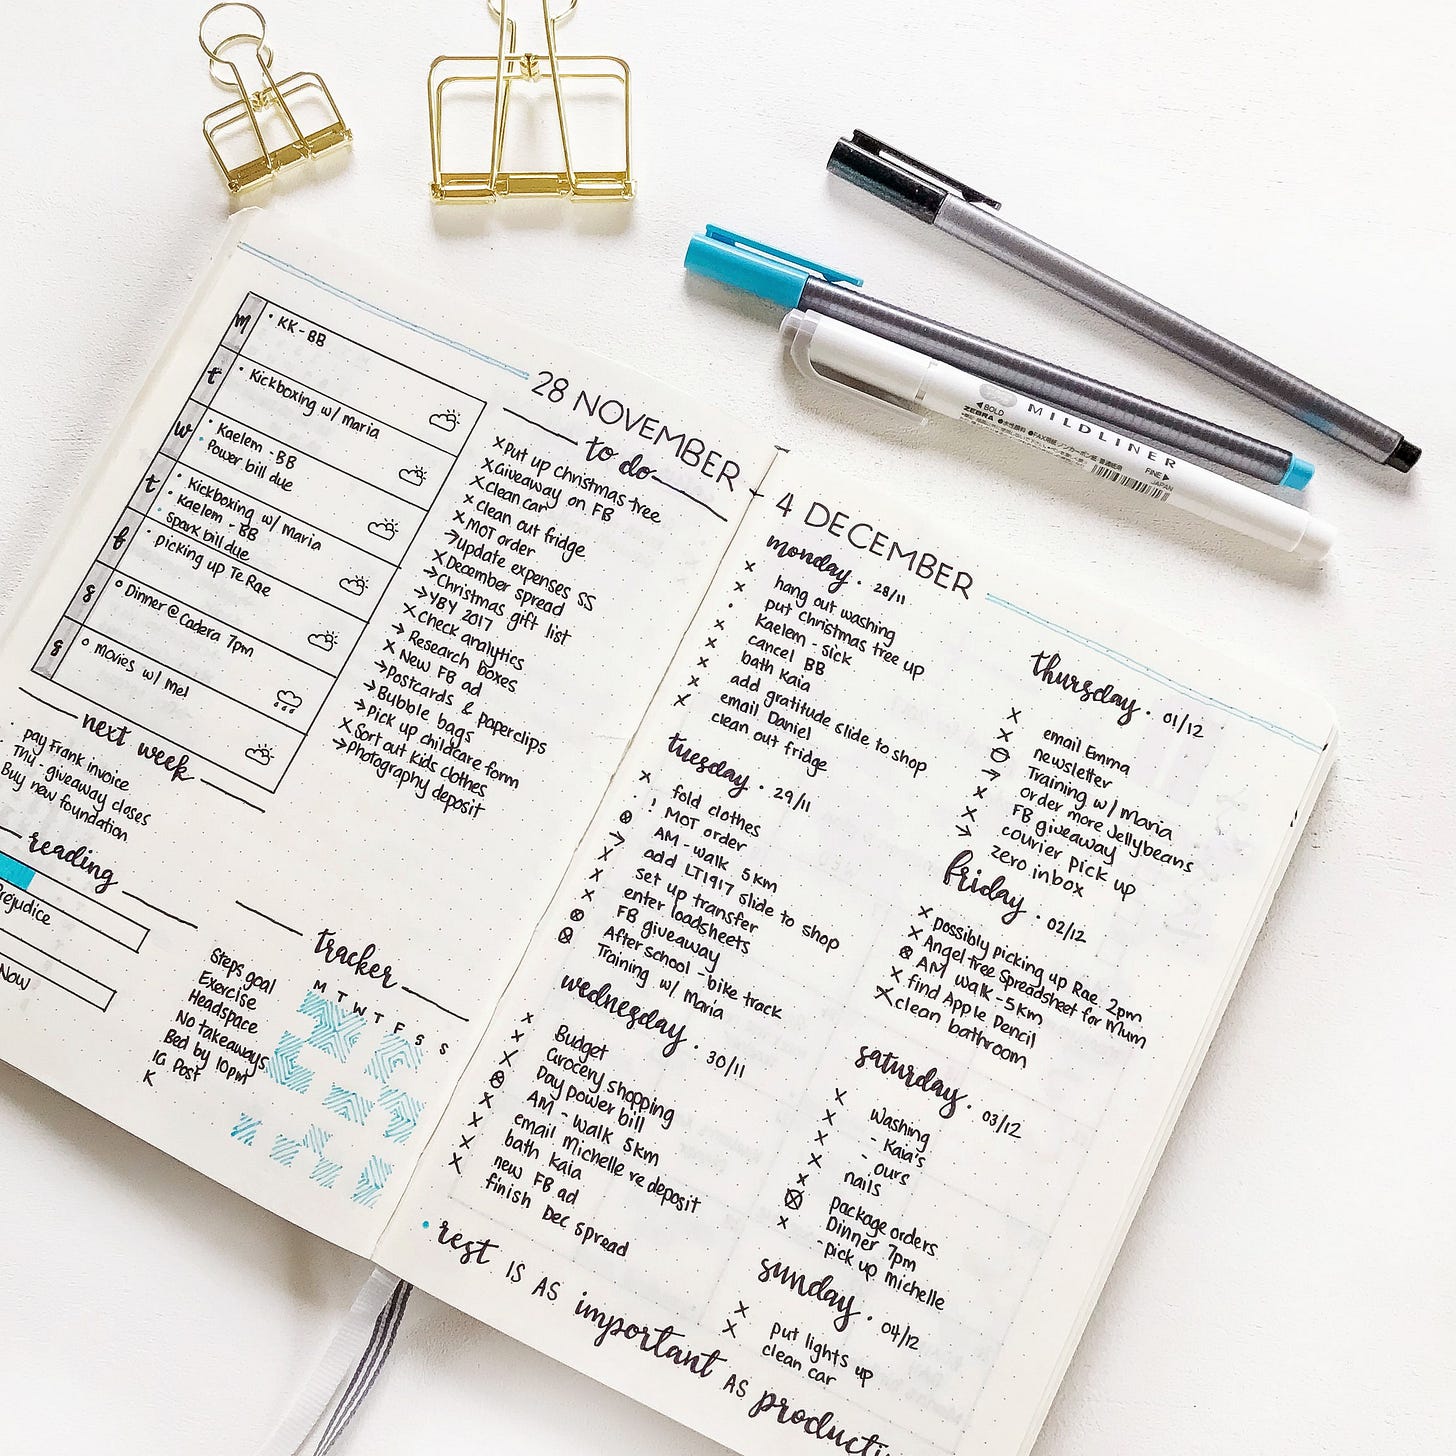 28 NOVEMBER -
m
• KK - BB
t
• Kickboxing w/ Maria
w
• Kaelem - BB
• Power bill due
t
• Kickboxing w/ Maria
• Kaelem - BB
• Spark bill due
f
• picking up Te Rae
s
○ Dinner @ Cadera 7pm
s
○ Movies w/ Mel
to do
× Put up christmas tree
× Giveaway on FB
× Clean car
× clean out fridge
× MOT order
→ Update expenses SS
× December spread
→ Christmas gift list
→ YBY 2017
× Check analytics
→ Research boxes
× New FB ad
→ Postcards & paperclips
→ Bubble bags
→ Pick up childcare form
× Sort out kids clothes
→ Photography deposit
next week
• pay Frank invoice
Thu - giveaway closes
Buy new foundation
reading
Prejudice
Now
tracker
M T W T F S S
Steps goal
Exercise
Headspace
No takeaways
Bed by 10pm
IG Post
K
4 DECEMBER
monday • 28/11
× hang out washing
× put Christmas tree up
• Kaelem - sick
× cancel BB
× bath Kaia
× add gratitude slide to shop
× email Daniel
× clean out fridge
tuesday • 29/11
× fold clothes
• ! MOT order
⊗ AM - walk 5km
→ add LT1917 slide to shop
× set up transfer
× enter loadsheets
× FB giveaway
⊗ After school - bike track
⊗ Training w/ Maria
wednesday • 30/11
× Budget
× Grocery shopping
× Pay power bill
⊗ AM - walk 5km
× email Michelle re deposit
× bath Kaia
× new FB ad
× finish Dec spread
thursday • 01/12
× email Emma
× newsletter
⊖ Training w/ Maria
→ order more Jellybeans
× FB giveaway
× courier pick up
→ zero inbox
friday • 02/12
× possibly picking up Rae 2pm
× Angel tree spreadsheet for Mum
⊗ AM walk - 5km
× find Apple Pencil
× clean bathroom
saturday • 03/12
× Washing
× - Kaia's
× - ours
× nails
× package orders
⊗ Dinner 7pm
× - pick up Michelle
sunday • 04/12
× put lights up
× clean car
• rest IS AS important AS producti
◀BOLD
ZEBRA
MILDLINER
FINE▶
JAPAN